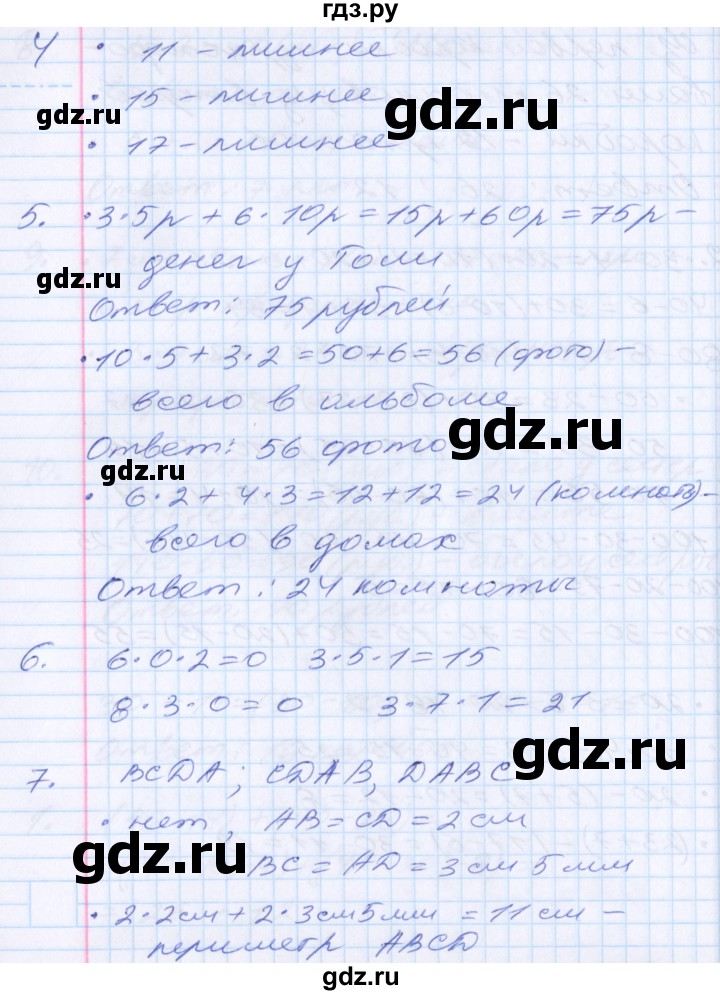 гдз.ру
4 • 11 – лишнее
• 15 – лишнее
gdz.ru
gdz.ru
• 17 – лишнее
5. • 3·5р + 6·10р = 15р + 60р = 75р –
gdz.ru
денег у Толи
Ответ: 75 рублей
gdz.ru
• 10·5 + 3·2 = 50 + 6 = 56 (фото) –
всего в альбоме
gdz.ru
Ответ: 56 фото
gdz.ru
• 6·2 + 4·3 = 12 + 12 = 24 (комнаты) –
всего в домах
Ответ: 24 комнаты
6. 6·0·2 = 0 3·5·1 = 15
8·3·0 = 0 3·7·1 = 21
gdz.ru
7. BCDA; CDAB, DABC
• нет, AB = CD = 2 см
gdz.ru
BC = AD = 3 см 5 мм
• 2·2см + 2·3см5мм = 11 см –
периметр ABCD
gdz.ru
gdz.ru
гдз.ру